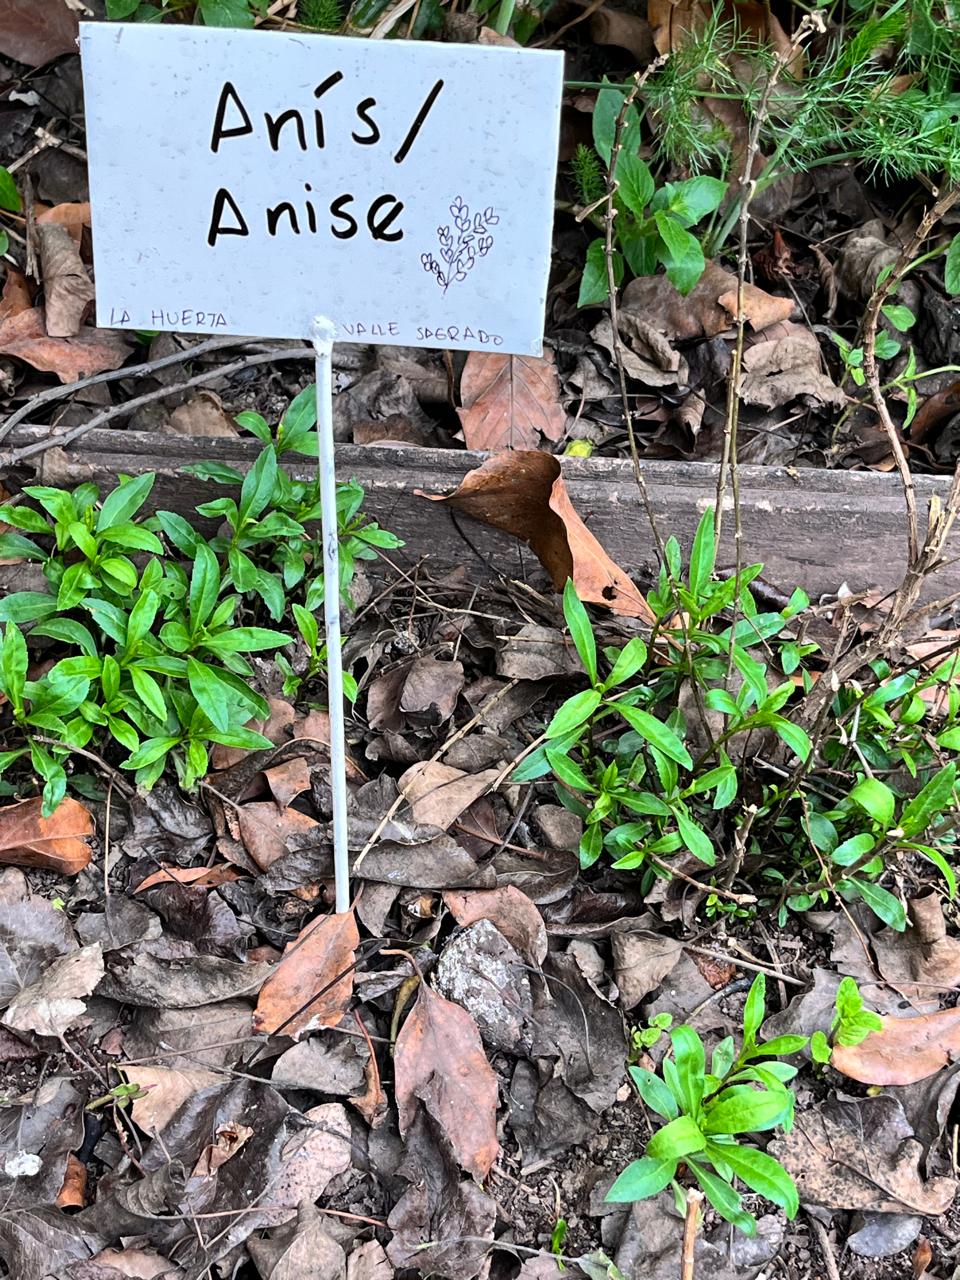 Anís/
Anise
LA HUERTA VALLE SAGRADO